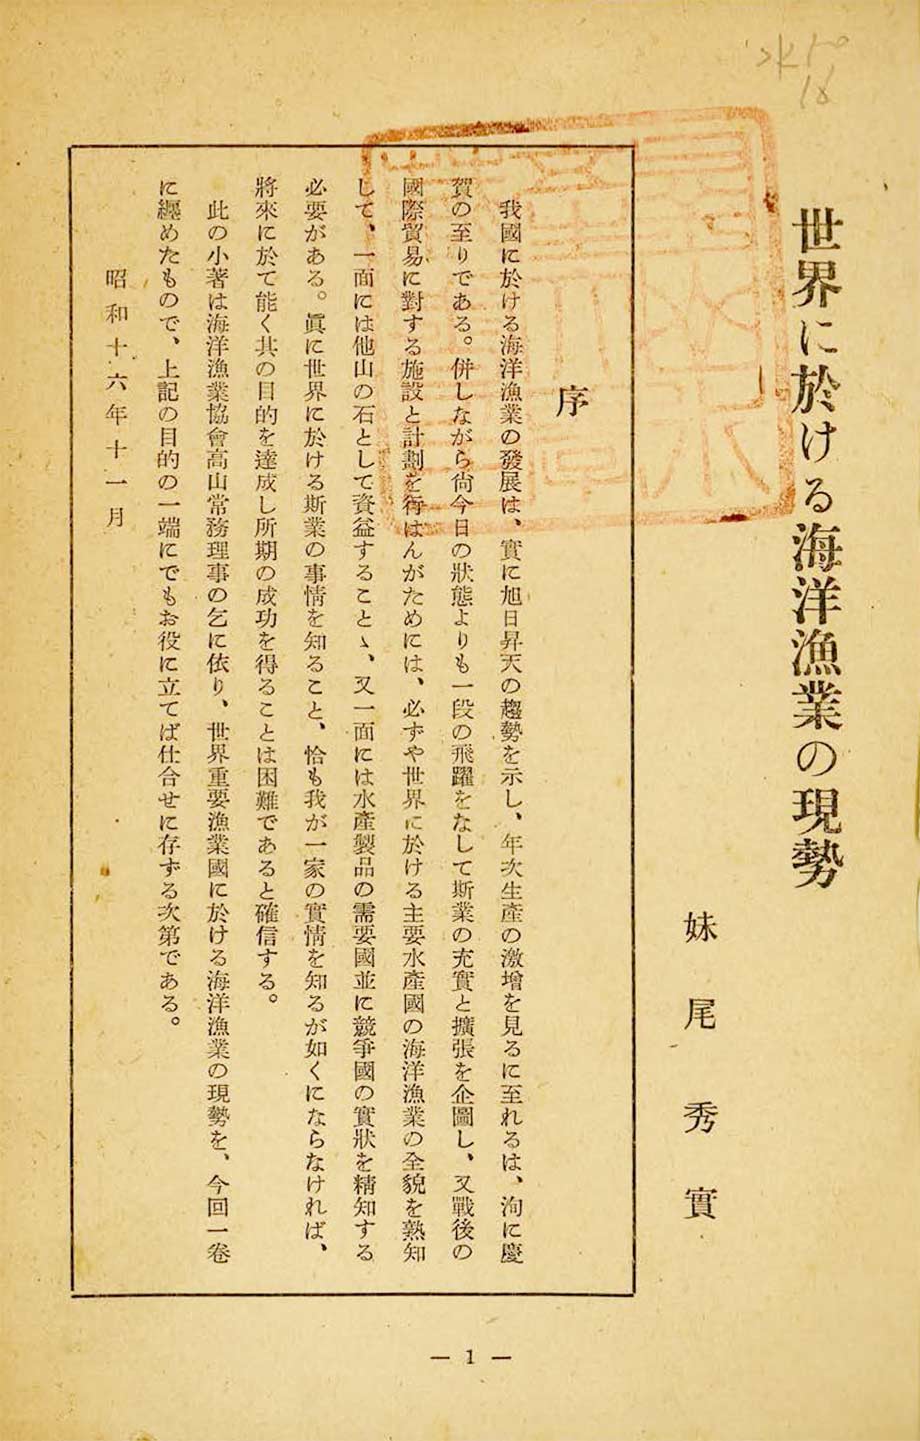 世界に於ける海洋漁業の現勢
妹尾秀實
序
我國に於ける海洋漁業の發展は、實に旭日昇天の趨勢を示し、年次生產の激增を見るに至れるは、洵に慶
賀の至りである。併しながら尙今日の狀態よりも一段の飛躍をなして斯業の充實と擴張を企圖し、又戰後の
國際貿易に對する施設と計劃を行はんがためには、必ずや世界に於ける主要水產國の海洋漁業の全貌を熟知
して、一面には他山の石として資益することゝ、又一面には水產製品の需要國並に競爭國の實狀を精知する
必要がある。眞に世界に於ける斯業の事情を知ること、恰も我が一家の實情を知るが如くにならなければ、
將來に於て能く其の目的を達成し所期の成功を得ることは困難であると確信する。
此の小著は海洋漁業協會高山常務理事の乞に依り、世界重要漁業國に於ける海洋漁業の現勢を、今回一卷
に纒めたもので、上記の目的の一端にでもお役に立てば仕合せに存ずる次第である。
昭和十六年十一月
— 1 —